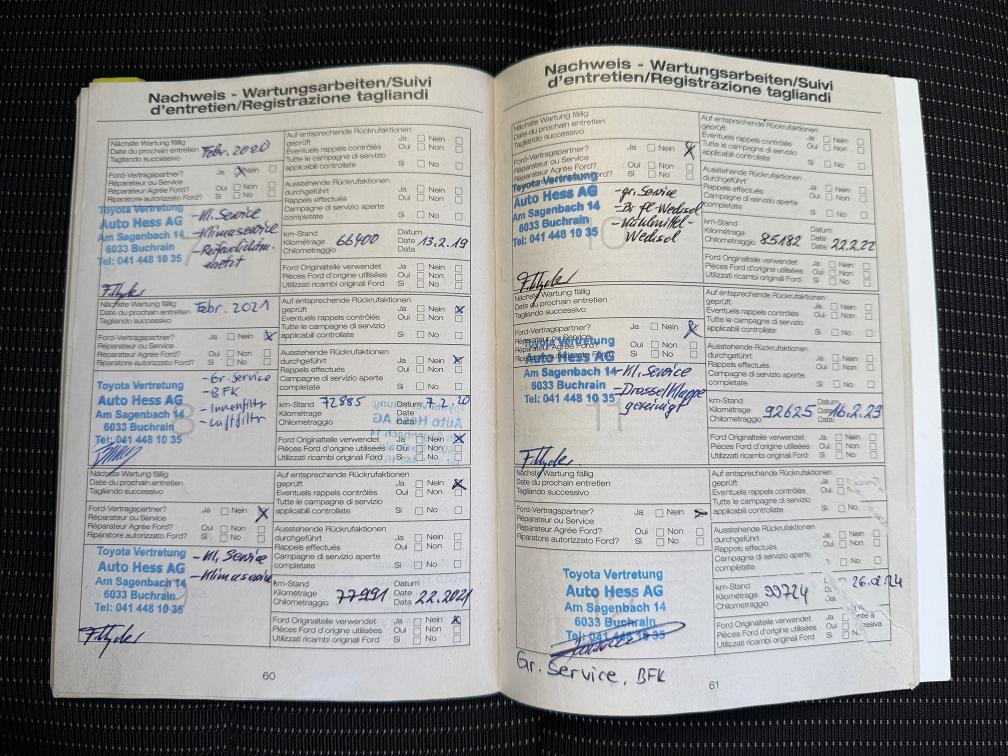 Nachweis - Wartungsarbeiten/Suivi
d'entretien/Registrazione tagliandi
Nächste Wartung fällig
Date du prochain entretien
Tagliando successivo
Febr. 2020
Auf entsprechende Rückrufaktionen
geprüft Ja Nein
Eventuels rappels contrôlés Oui Non
Tutte le campagne di servizio
applicabili controllate Si No
Ford-Vertragspartner? Ja Nein
Réparateur ou Service
Réparateur Agrée Ford? Oui Non
Riparatore autorizzato Ford? Si No
Ausstehende Rückrufaktionen
durchgeführt Ja Nein
Rappels effectués Oui Non
Campagne di servizio aperte
completate Si No
Toyota Vertretung
Auto Hess AG
Am Sagenbach 14
6033 Buchrain
Tel: 041 448 10 35
- Kl. Service
- Klimaservice
km-Stand
Kilométrage
Chilometraggio
66400
Datum
Date
Data
13.2.19
Ford Originalteile verwendet Ja Nein
Pièces Ford d'origine utilisées Oui Non
Utilizzati ricambi originali Ford Si No
Nächste Wartung fällig
Date du prochain entretien
Tagliando successivo
Febr. 2021
Auf entsprechende Rückrufaktionen
geprüft Ja Nein
Eventuels rappels contrôlés Oui Non
Tutte le campagne di servizio
applicabili controllate Si No
Ford-Vertragspartner? Ja Nein
Réparateur ou Service
Réparateur Agrée Ford? Oui Non
Riparatore autorizzato Ford? Si No
Ausstehende Rückrufaktionen
durchgeführt Ja Nein
Rappels effectués Oui Non
Campagne di servizio aperte
completate Si No
Toyota Vertretung
Auto Hess AG
Am Sagenbach 14
6033 Buchrain
Tel: 041 448 10 35
- Gr. Service
- BFK
- Innenfilter
- Luftfilter
8
km-Stand
Kilométrage
Chilometraggio
72885
Datum
Date
Data
7.2.20
Ford Originalteile verwendet Ja Nein
Pièces Ford d'origine utilisées Oui Non
Utilizzati ricambi originali Ford Si No
Nächste Wartung fällig
Date du prochain entretien
Tagliando successivo
Auf entsprechende Rückrufaktionen
geprüft Ja Nein
Eventuels rappels contrôlés Oui Non
Tutte le campagne di servizio
applicabili controllate Si No
Ford-Vertragspartner? Ja Nein
Réparateur ou Service
Réparateur Agrée Ford? Oui Non
Riparatore autorizzato Ford? Si No
Ausstehende Rückrufaktionen
durchgeführt Ja Nein
Rappels effectués Oui Non
Campagne di servizio aperte
completate Si No
Toyota Vertretung
Auto Hess AG
Am Sagenbach 14
6033 Buchrain
Tel: 041 448 10 35
- Kl. Service
- Klimaservice
km-Stand
Kilométrage
Chilometraggio
77991
Datum
Date
Data
22.2021
Ford Originalteile verwendet Ja Nein
Pièces Ford d'origine utilisées Oui Non
Utilizzati ricambi originali Ford Si No
60
Nachweis - Wartungsarbeiten/Suivi
d'entretien/Registrazione tagliandi
Nächste Wartung fällig
Date du prochain entretien
Tagliando successivo
Auf entsprechende Rückrufaktionen
geprüft Ja Nein
Eventuels rappels contrôlés Oui Non
Tutte le campagne di servizio
applicabili controllate Si No
Ford-Vertragspartner? Ja Nein
Réparateur ou Service
Réparateur Agrée Ford? Oui Non
Si No
Ausstehende Rückrufaktionen
durchgeführt Ja Nein
Rappels effectués Oui Non
Campagne di servizio aperte
completate Si No
Toyota Vertretung
Auto Hess AG
Am Sagenbach 14
6033 Buchrain
Tel: 041 448 10 35
- gr. Service
- Br Fl-Wechsel
- Kühlmittel-
Wechsel
10
km-Stand
Kilométrage
Chilometraggio
85182
Datum
Date
Data
22.2.22
Ford Originalteile verwendet Ja Nein
Pièces Ford d'origine utilisées Oui Non
Utilizzati ricambi originali Ford Si No
Nächste Wartung fällig
Date du prochain entretien
Tagliando successivo
Auf entsprechende Rückrufaktionen
geprüft Ja Nein
Eventuels rappels contrôlés Oui Non
Tutte le campagne di servizio
applicabili controllate Si No
Ford-Vertragspartner? Ja Nein
Oui Non
Si No
Ausstehende Rückrufaktionen
durchgeführt Ja Nein
Rappels effectués Oui Non
Campagne di servizio aperte
completate Si No
Toyota Vertretung
Auto Hess AG
Am Sagenbach 14
6033 Buchrain
Tel: 041 448 10 35
- Kl. Service
- Drosselklappe
gereinigt
11
km-Stand
Kilométrage
Chilometraggio
92625
Datum
Date
Data
16.2.23
Ford Originalteile verwendet Ja Nein
Pièces Ford d'origine utilisées Oui Non
Utilizzati ricambi originali Ford Si No
Nächste Wartung fällig
Date du prochain entretien
Tagliando successivo
Auf entsprechende Rückrufaktionen
geprüft Ja
Eventuels rappels contrôlés Oui Non
Tutte le campagne di servizio
applicabili controllate Si No
Ford-Vertragspartner? Ja Nein
Réparateur ou Service
Réparateur Agrée Ford? Oui Non
Riparatore autorizzato Ford? Si No
Ausstehende Rückrufaktionen
durchgeführt Ja Nein
Rappels effectués Oui Non
Campagne di servizio aperte
completate No
Toyota Vertretung
Auto Hess AG
Am Sagenbach 14
6033 Buchrain
Tel: 041 448 10 35
Gr. Service, BFK
km-Stand
Kilométrage
Chilometraggio
99724
26.02.24
Ford Originalteile verwendet Ja
Pièces Ford d'origine utilisées Oui
Utilizzati ricambi originali Ford Si
61